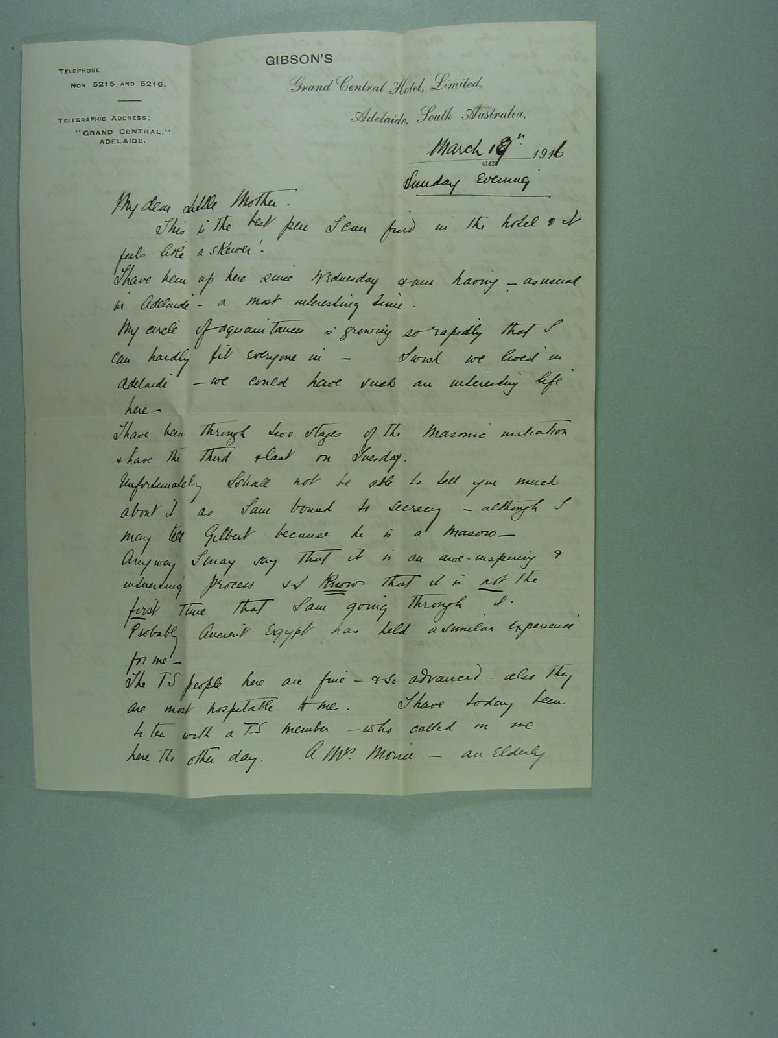 TELEPHONE
NOS 5215 AND 5216.
TELEGRAPHIC ADDRESS:
"GRAND CENTRAL,"
ADELAIDE.
GIBSON'S
Grand Central Hotel, Limited,
Adelaide, South Australia,
March 19th 1916
Sunday Evening
My dear Little Mother.
This is the best pen I can find in the hotel & it
feels like a skewer!
I have been up here since Wednesday & am having – as usual
in Adelaide – a most interesting time.
My circle of aquaintances is growing so rapidly that I
can hardly fit everyone in – I wish we lived in
Adelaide – we could have such an interesting life
here –
I have been through two stages of the Masonic initiation
& have the third & last on Tuesday.
Unfortunately I shall not be able to tell you much
about it as I am bound to secrecy – although I
may tell Gilbert because he is a Mason –
Anyway I may say that it is an awe-inspiring &
interesting process & I know that it is not the
first time that I am going through it.
Probably Ancient Egypt has held a similar experience
for me –
The TS people here are fine – & so advanced. also they
are most hospitable to me. I have today been
to tea with a T.S member – who called on me
here the other day. A Mrs – an elderly